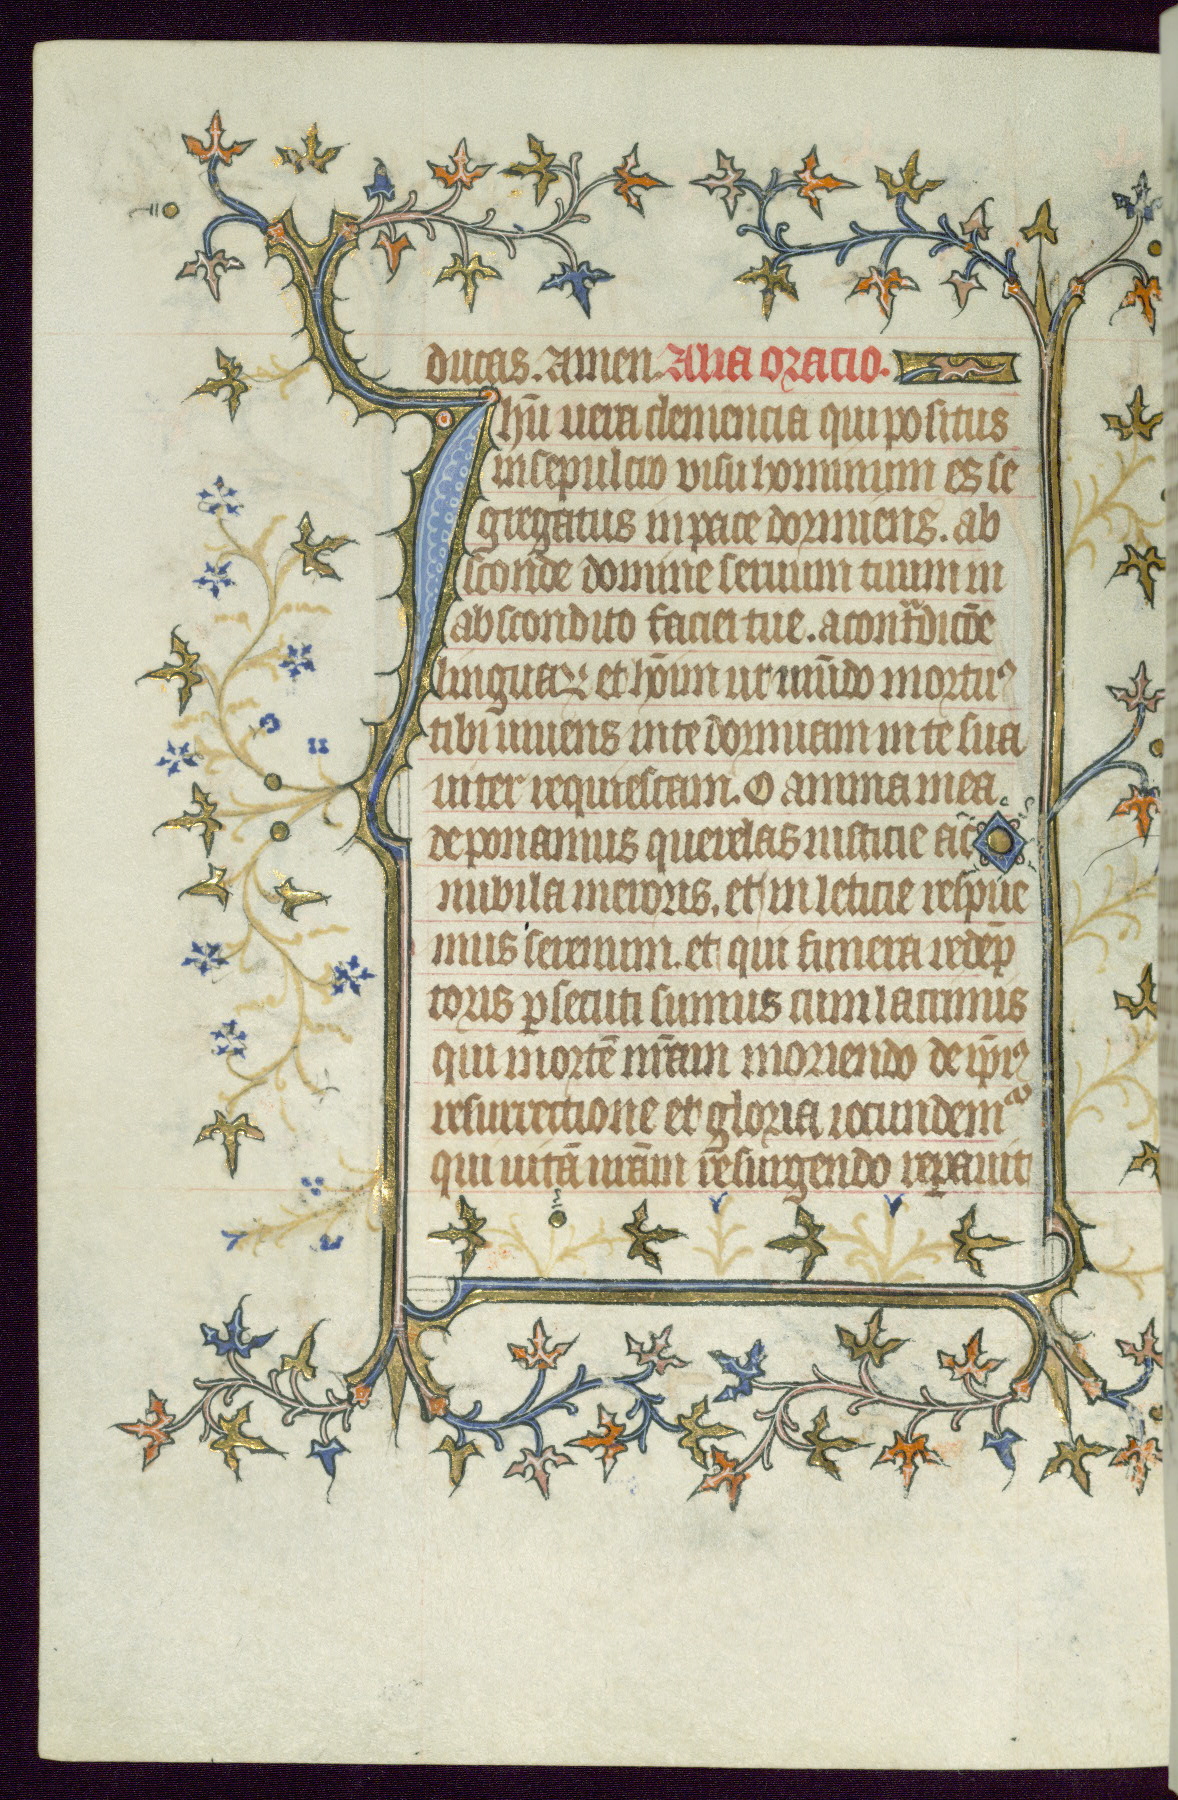 ducas. Amen. Alia oracio.
Ihū uera clemencia qui positus
in sepulcro uisu hominum es se
gregatus in pace dormiens. ab
sconde domine seruum tuum in
abscondito faciei tue. a contᵃdictōe
linguaꝝ et hōīm ut mūdo mortuꝰ
tibi uiuens in te dormiam in te sua
uiter requiescam. O anima mea
deponamus querelas iusticie ac
nubila meroris. et in leticie respue
mus serenum. et qui funera redēp
toris ꝑsecuti sumus cum lacrimis
qui mortē nr̄am moriendo de ip̄iꝰ
resurrectione et gloria iocundemᵘʳ
qui uitā nr̄am resurgendo reparauit